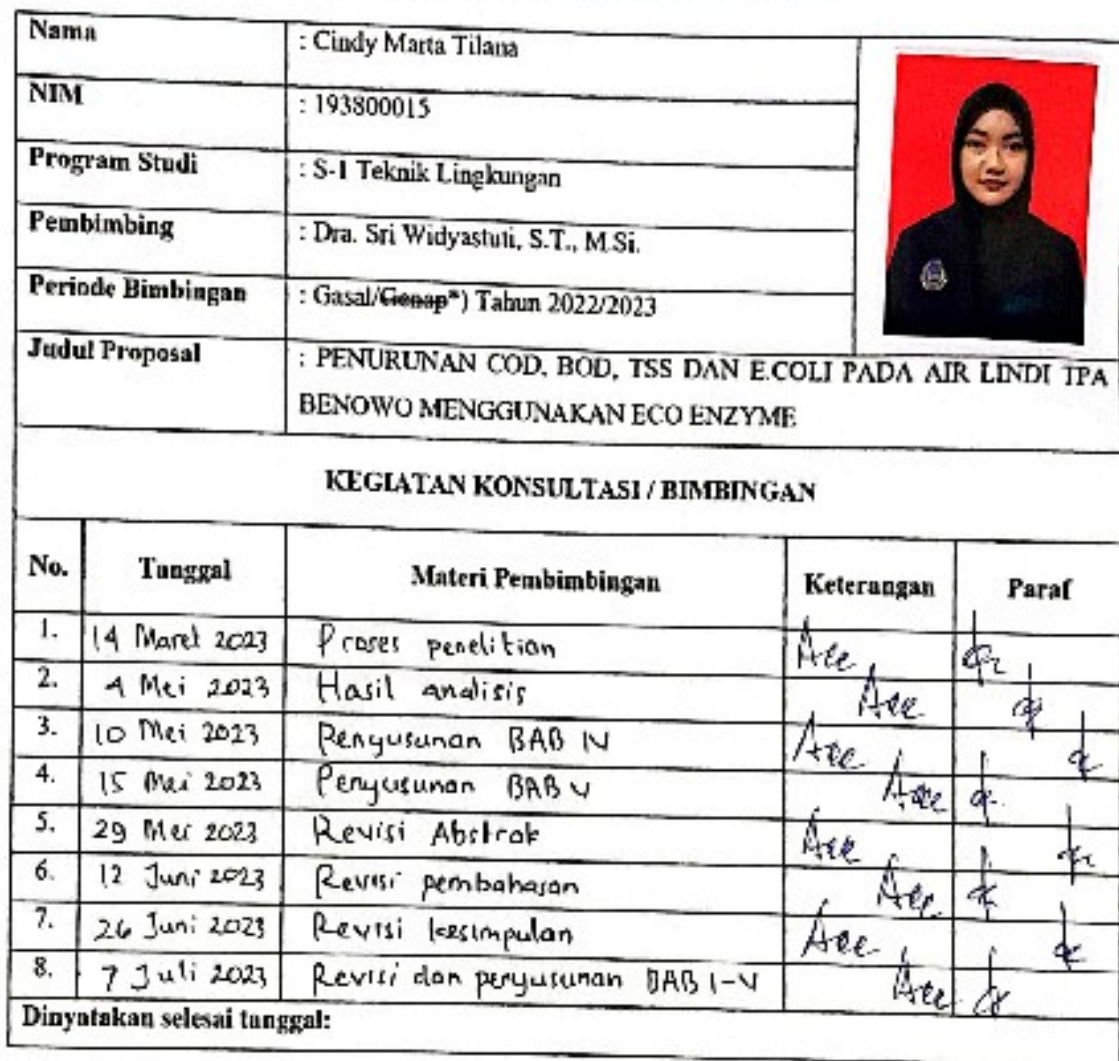 Nama : Cindy Marta Tilana
NIM : 193800015
Program Studi : S-1 Teknik Lingkungan
Pembimbing : Dra. Sri Widyastuti, S.T., M.Si.
Periode Bimbingan : Gasal/Genap*) Tahun 2022/2023
Judul Proposal : PENURUNAN COD, BOD, TSS DAN E.COLI PADA AIR LINDI TPA
BENOWO MENGGUNAKAN ECO ENZYME
KEGIATAN KONSULTASI / BIMBINGAN
No. Tanggal Materi Pembimbingan Keterangan Paraf
1. 14 Maret 2023 Proses penelitian Acc
2. 4 Mei 2023 Hasil analisis Acc
3. 10 Mei 2023 Penyusunan BAB IV Acc
4. 15 Mei 2023 Penyusunan BAB V Acc
5. 29 Mei 2023 Revisi Abstrak Acc
6. 12 Juni 2023 Revisi pembahasan Acc
7. 26 Juni 2023 Revisi kesimpulan Acc
8. 7 Juli 2023 Revisi dan penyusunan BAB I-V Acc
Dinyatakan selesai tanggal: